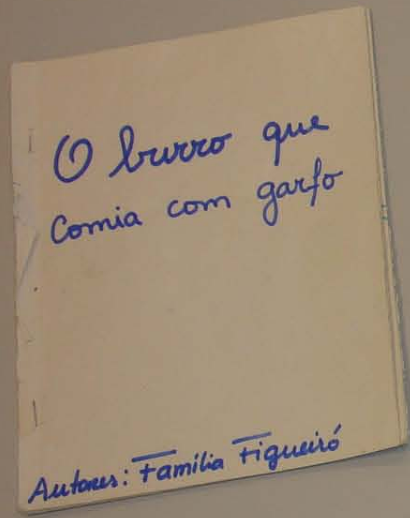 O burro que
Comia com garfo
Autores: Família Figueiró